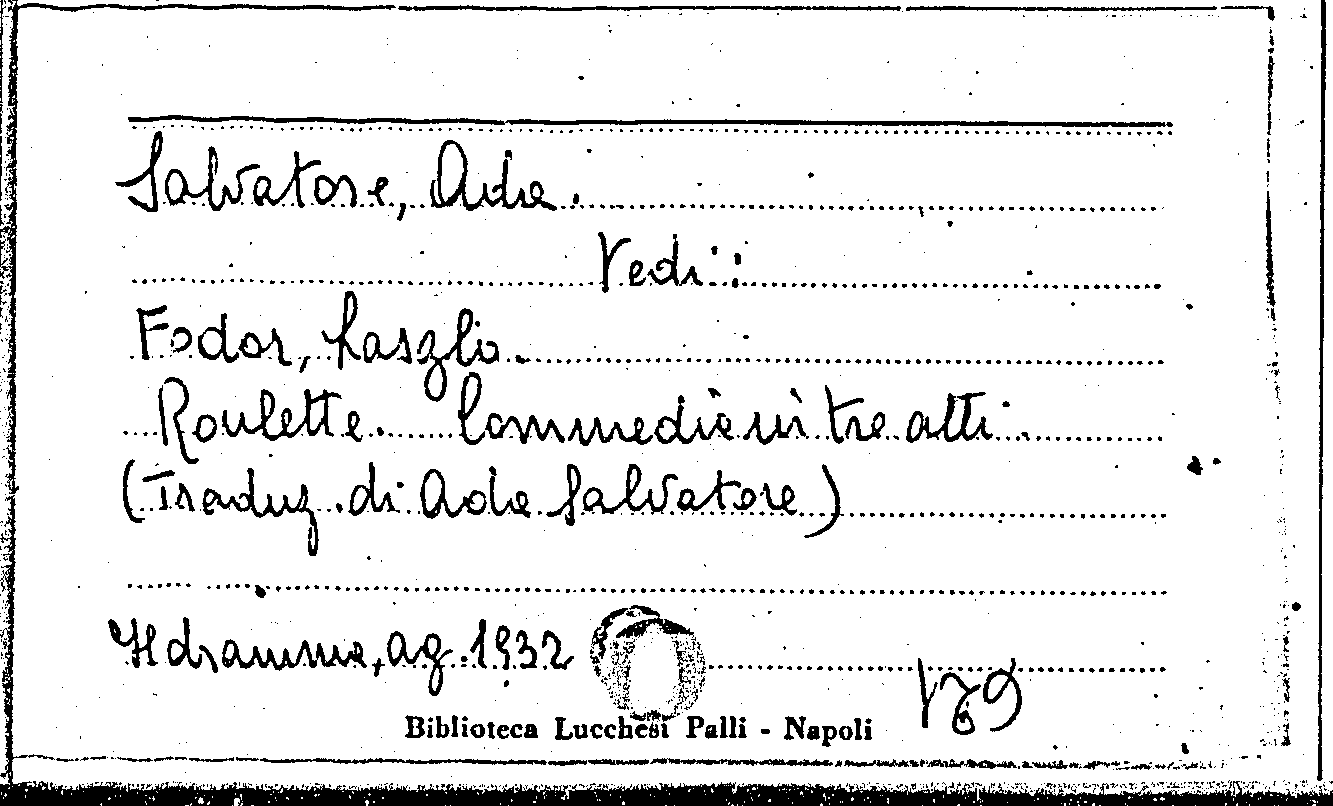 Salvatore, Ada.
Vedi:
Fodor, Laszlo.
Roulette. Commedia in tre atti.
(Traduz. di Ada Salvatore)
Il dramma, ag. 1932
Biblioteca Lucchesi Palli - Napoli